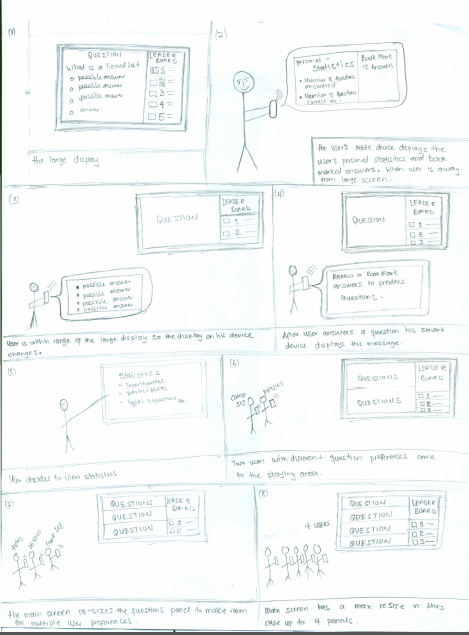 (1)
QUESTION
What is a linked list
possible answer
possible answer
possible answer
answer
LEADER
BOARD
1
2
3
4
5
the large display
(2)
Personal -
Statistics
• Number of questions
answered
• Number of questions
correct
Book Mark
of Answers
the user's mobile device displays the
user's personal statistics and book
marked answers. When user is away
from large screen.
(3)
QUESTION
LEADER
BOARD
1
2
• possible answer
• possible answer
• possible answer
• possible answer
User is within range of the large display so the display on his device
changes.
(4)
QUESTION
LEADER
BOARD
1
2
3
Review or Book Mark
answers to previous
questions.
After user answers a question his smart
device displays this message.
(5)
Statistics
User decides to view statistics
(6)
COMP
SCI
PHYSICS
QUESTIONS
QUESTIONS
LEADER
BOARD
1
2
3
Two users with different question preferences come
to the playing area.
(7)
PHYSICS
COMP SCI
QUESTIONS
QUESTION
QUESTION
LEADER
BOARD
1
2
the main screen re-sizes the questions panel to make room
for multiple user preferences.
(8)
4 USERS
QUESTION
QUESTION
QUESTION
QUESTION
LEADER
BOARD
1
2
3
Main screen has a max resize in this
case up to 4 panels.